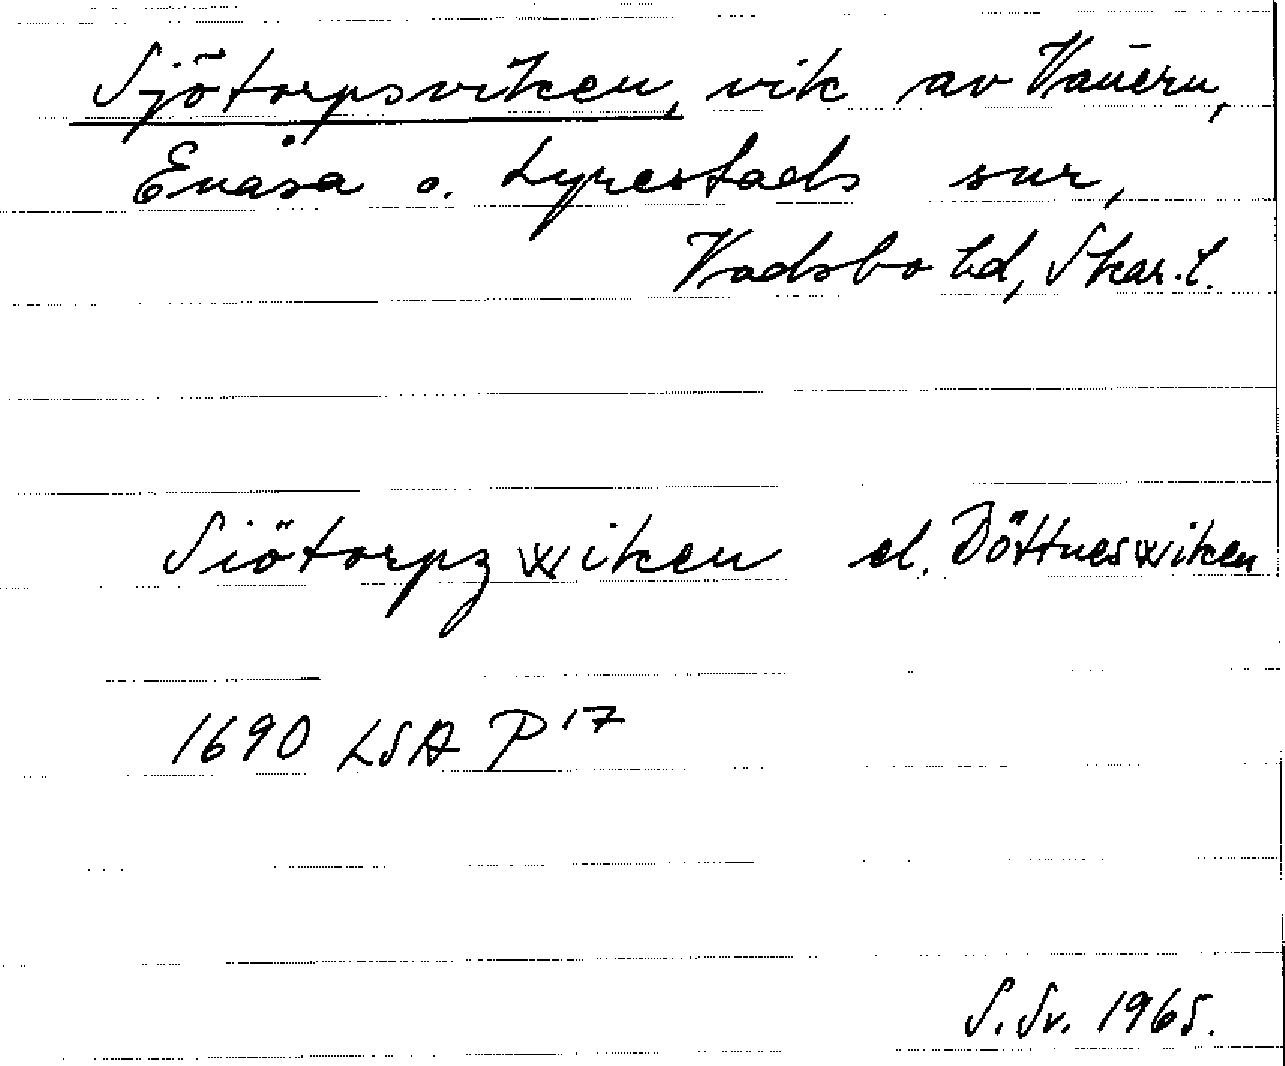 Sjötorpsviken, vik av Vänern,
Enåsa o. Lyrestads snr,
Vadsbo hd, Skar. l.
Siötorpz wiken el. Böttneswiken
1690 LSA P 17
S. Sv. 1965.